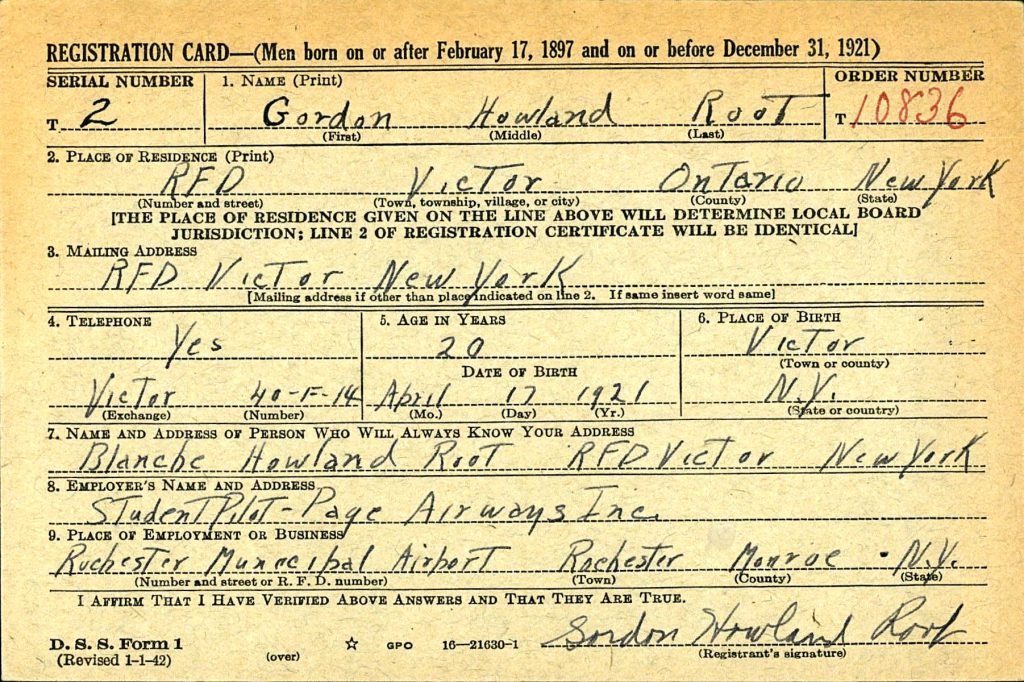 REGISTRATION CARD—(Men born on or after February 17, 1897 and on or before December 31, 1921)
SERIAL NUMBER 1. NAME (Print) ORDER NUMBER
T 2 Gordon Howland Root T 10836
(First) (Middle) (Last)
2. PLACE OF RESIDENCE (Print)
RFD Victor Ontario New York
(Number and street) (Town, township, village, or city) (County) (State)
[THE PLACE OF RESIDENCE GIVEN ON THE LINE ABOVE WILL DETERMINE LOCAL BOARD
JURISDICTION; LINE 2 OF REGISTRATION CERTIFICATE WILL BE IDENTICAL]
3. MAILING ADDRESS
RFD Victor New York
[Mailing address if other than place indicated on line 2. If same insert word same]
4. TELEPHONE 5. AGE IN YEARS 6. PLACE OF BIRTH
Yes 20 Victor
(Town or county)
DATE OF BIRTH
Victor 40-F-14 April 17 1921 N.Y.
(Exchange) (Number) (Mo.) (Day) (Yr.) (State or country)
7. NAME AND ADDRESS OF PERSON WHO WILL ALWAYS KNOW YOUR ADDRESS
Blanche Howland Root RFD Victor New York
8. EMPLOYER'S NAME AND ADDRESS
Student Pilot - Page Airways Inc.
9. PLACE OF EMPLOYMENT OR BUSINESS
Rochester Municipal Airport Rochester Monroe N.Y.
(Number and street or R. F. D. number) (Town) (County) (State)
I AFFIRM THAT I HAVE VERIFIED ABOVE ANSWERS AND THAT THEY ARE TRUE.
Gordon Howland Root
D. S. S. Form 1 GPO 16—21630-1 (Registrant's signature)
(Revised 1-1-42) (over)